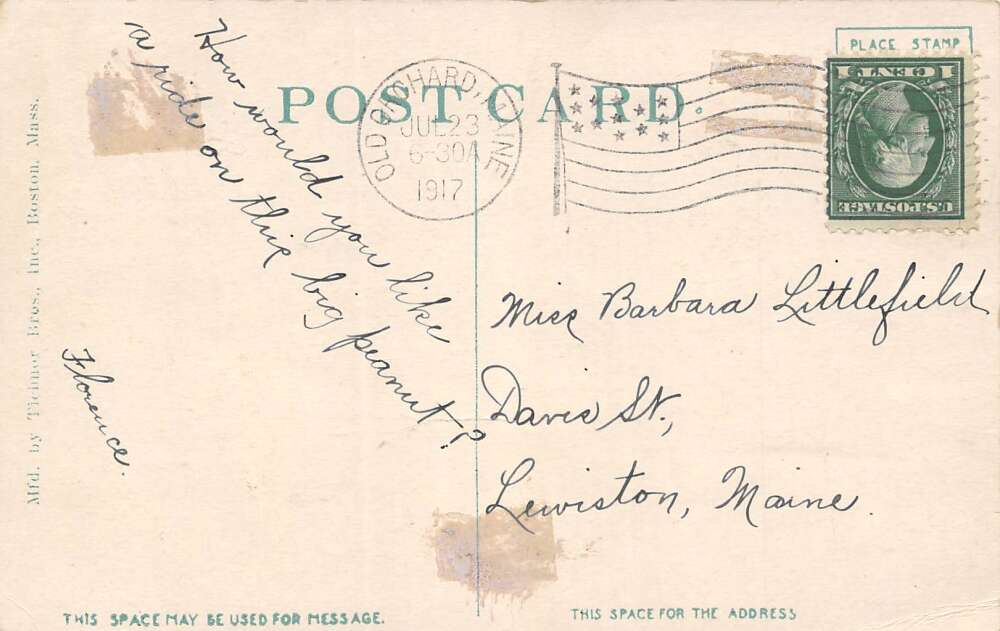 PLACE STAMP
POST CARD.
OLD ORCHARD, MAINE
JUL 23
6-30A
1917
1 CENT 1
U.S. POSTAGE
How would you like
a ride on this big peanut?
Florence.
Miss Barbara Littlefield
Davis St.,
Lewiston, Maine.
Mfd. by Tichnor Bros., Inc., Boston. Mass.
THIS SPACE MAY BE USED FOR MESSAGE.
THIS SPACE FOR THE ADDRESS